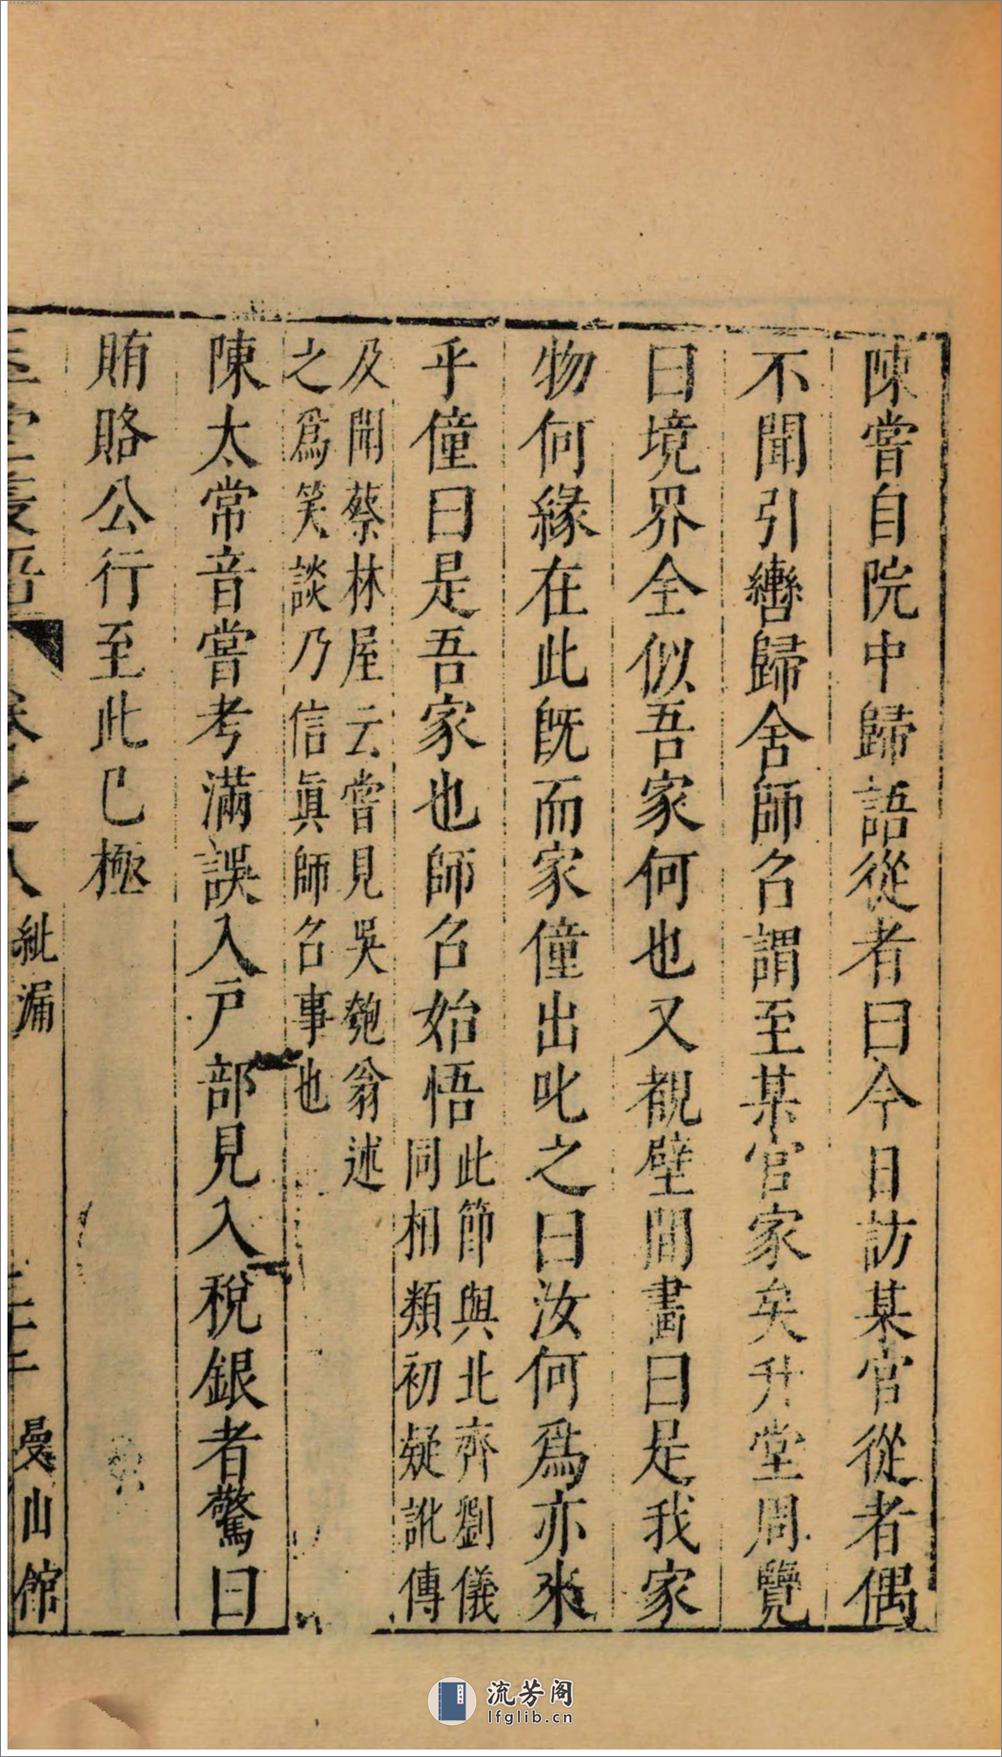 陳嘗自院中歸語從者曰今日訪某官從者偶
不聞引轡歸舍師召謂至某官家矣升堂周覽
曰境界全似吾家何也又觀壁間畫曰是我家
物何緣在此旣而家僮出叱之曰汝何爲亦來
乎僮曰是吾家也師召始悟
此節與北齊劉儀
同相類初疑訛傳
及聞蔡林屋云嘗見吳匏翁述
之爲笑談乃信眞師召事也
陳太常音嘗考滿誤入戶部見入稅銀者驚曰
賄賂公行至此已極
玉堂叢語
卷之八
紕漏
曼山館
流芳阁
lfglib.cn